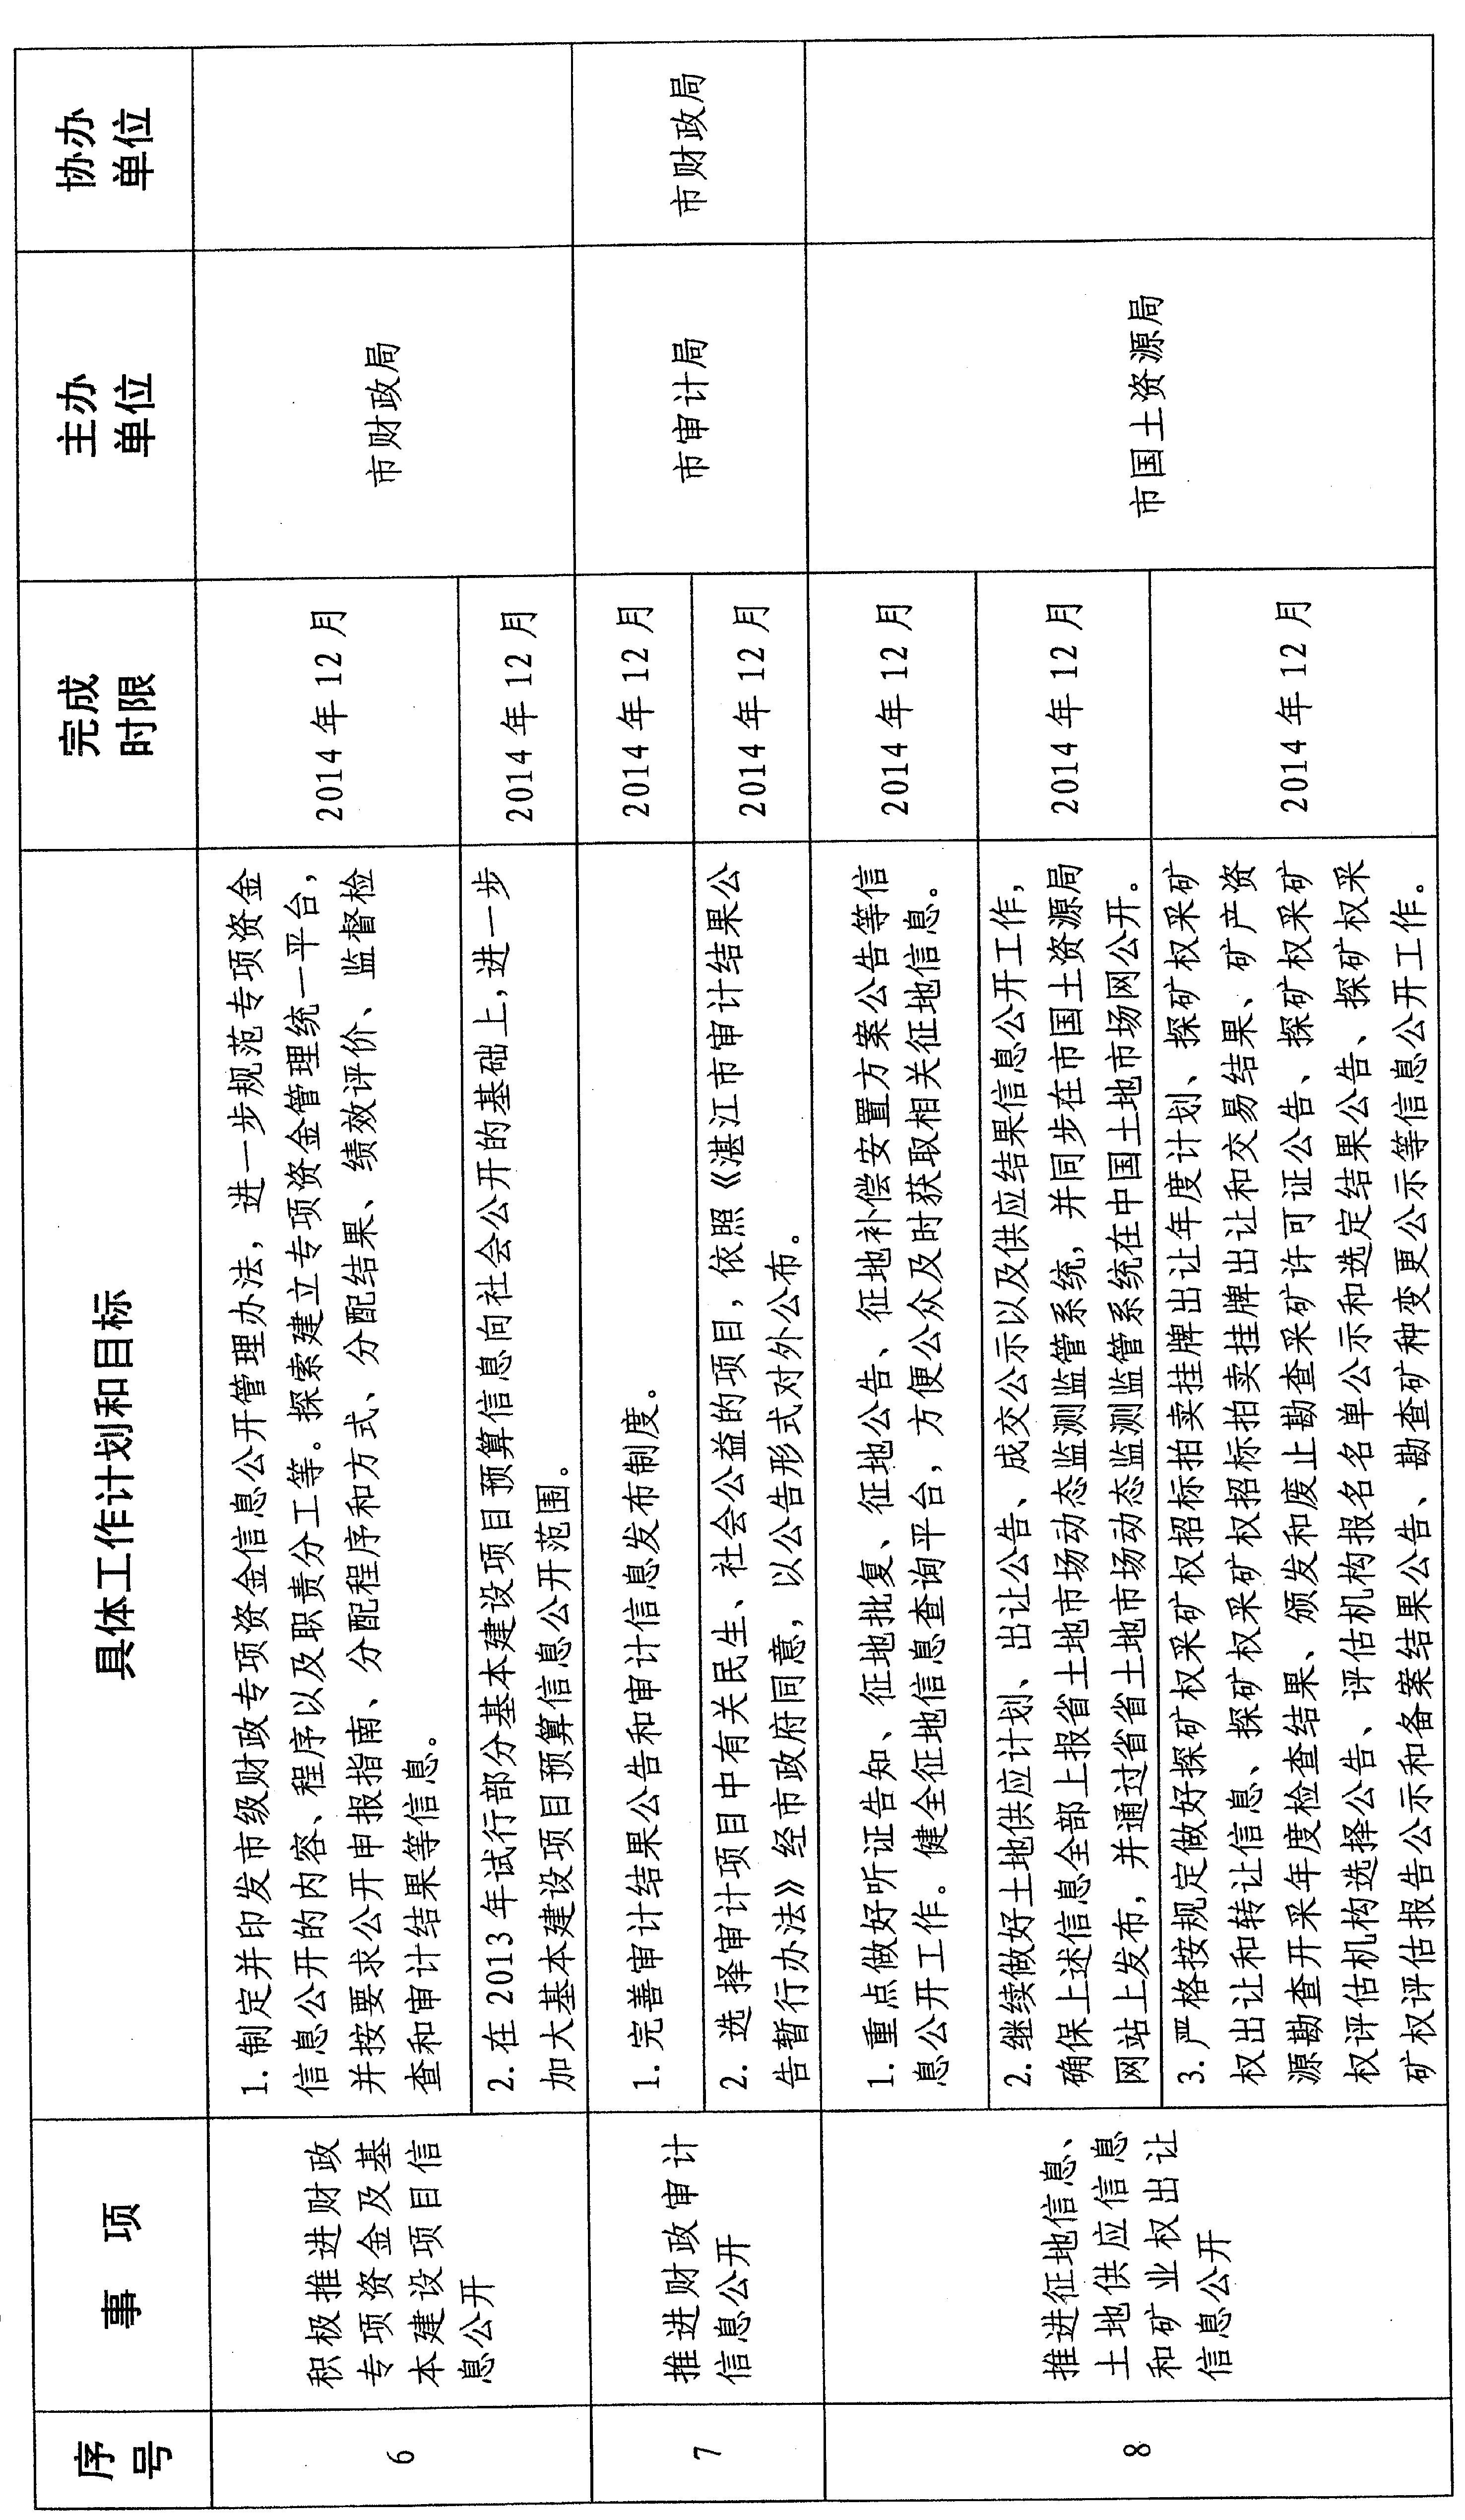 序号
事 项
具体工作计划和目标
完成时限
主办单位
协办单位
6
积极推进财政
专项资金及基
本建设项目信
息公开
1. 制定并印发市级财政专项资金信息公开管理办法，进一步规范专项资金
信息公开的内容、程序以及职责分工等。探索建立专项资金管理统一平台，
并按要求公开申报指南、分配程序和方式、分配结果、绩效评价、监督检
查和审计结果等信息。
2014 年 12 月
市财政局
2. 在 2013 年试行部分基本建设项目预算信息向社会公开的基础上,进一步
加大基本建设项目预算信息公开范围。
2014 年 12 月
7
推进财政审计
信息公开
1. 完善审计结果公告和审计信息发布制度。
2014 年 12 月
市审计局
市财政局
2. 选择审计项目中有关民生、社会公益的项目，依照《湛江市审计结果公
告暂行办法》经市政府同意，以公告形式对外公布。
2014 年 12 月
8
推进征地信息、
土地供应信息
和矿业权出让
信息公开
1. 重点做好听证告知、征地批复、征地公告、征地补偿安置方案公告等信
息公开工作。健全征地信息查询平台，方便公众及时获取相关征地信息。
2014 年 12 月
市国土资源局
2. 继续做好土地供应计划、出让公告、成交公示以及供应结果信息公开工作，
确保上述信息全部上报省土地市场动态监测监管系统，并同步在市国土资源局
网站上发布，并通过省省土地市场动态监测监管系统在中国土地市场网公开。
2014 年 12 月
3. 严格按规定做好探矿权采矿权招标拍卖挂牌出让年度计划、探矿权采矿
权出让和转让信息、探矿权采矿权招标拍卖挂牌出让和交易结果、矿产资
源勘查开采年度检查结果、颁发和废止勘查采矿许可证公告、探矿权采矿
权评估机构选择公告、评估机构报名名单公示和选定结果公告、探矿权采
矿权评估报告公示和备案结果公告、勘查矿种变更公示等信息公开工作。
2014 年 12 月